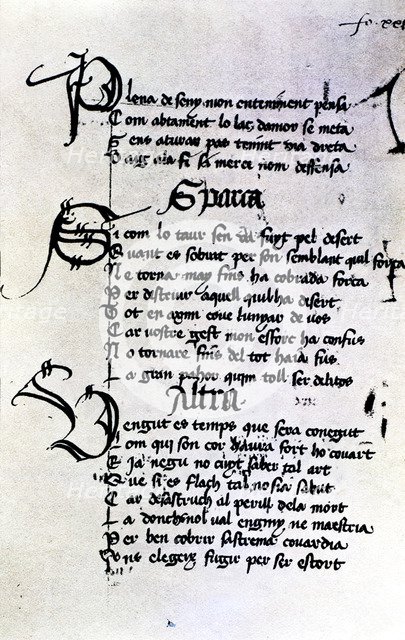 fo. xxi
Plena de seny mon enteniment pensa
Com abtament lo laç damor se meta
Sens aturar pas tenint via dreta
Vaig a la fi si merce nom deffensa
Sparça
Si com lo taur sen va fuyt pel desert
Quant es sobrat per son semblant quil força
Ne torna may fins ha cobrada força
Per destruir aquell quil ha desert
Tot en axim cove lunyar de vos
Car vostre gest mon esforç ha confus
No tornare fins del tot haia fus
La gran pahor quim toll ser delitos
Altra
Vengut es temps que sera conegut
Lom qui son cor haura fort ho covart
E ja negu no cuyt saber tal art
Que si es flach tal no sia sabut
Car desastruch al perill dela mort
La donchs nol val enginy ne maestria
Per ben cobrir sastrema covardia
Ans elegeix fugir per ser estort